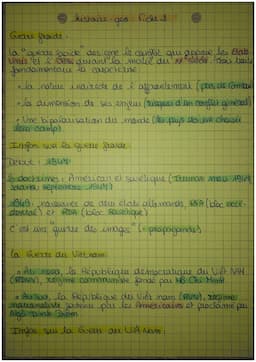 histoire-géo Fiche 1
Guerre froide :
la "guerre froide" désigne le conflit qui oppose les États
Unis et l'URSS durant la moitié du XXe siècle. Trois traits
fondamentaux la caractérise
• la nature indirecte de l'affrontement (pas de combat
• la dimension de ses enjeux (risques d'un conflit général)
• Une bipolarisation du monde (les pays doivent choisir
leur camp)
Infos sur la guerre froide
Début : 1947
2 doctrines : Américain et soviétique (Truman mars 1947
Jdanov septembre 1947)
1949, naissance de deux états allemands, RFA (bloc occi-
dental) et RDA (bloc soviétique)
C'est une "guerre des images" (= propagande)
la Guerre du Viêt nam :
• Au nord, la République démocratique du Viêt NAM
(RDVN), régime communiste fondé par Hô Chi Minh
• Au sud, la République du Viêt nam (RVN), régime
nationaliste soutenu par les Américains et proclamé par
Ngô Dinh Diêm
Infos sur la Guerre du Viêt nam :